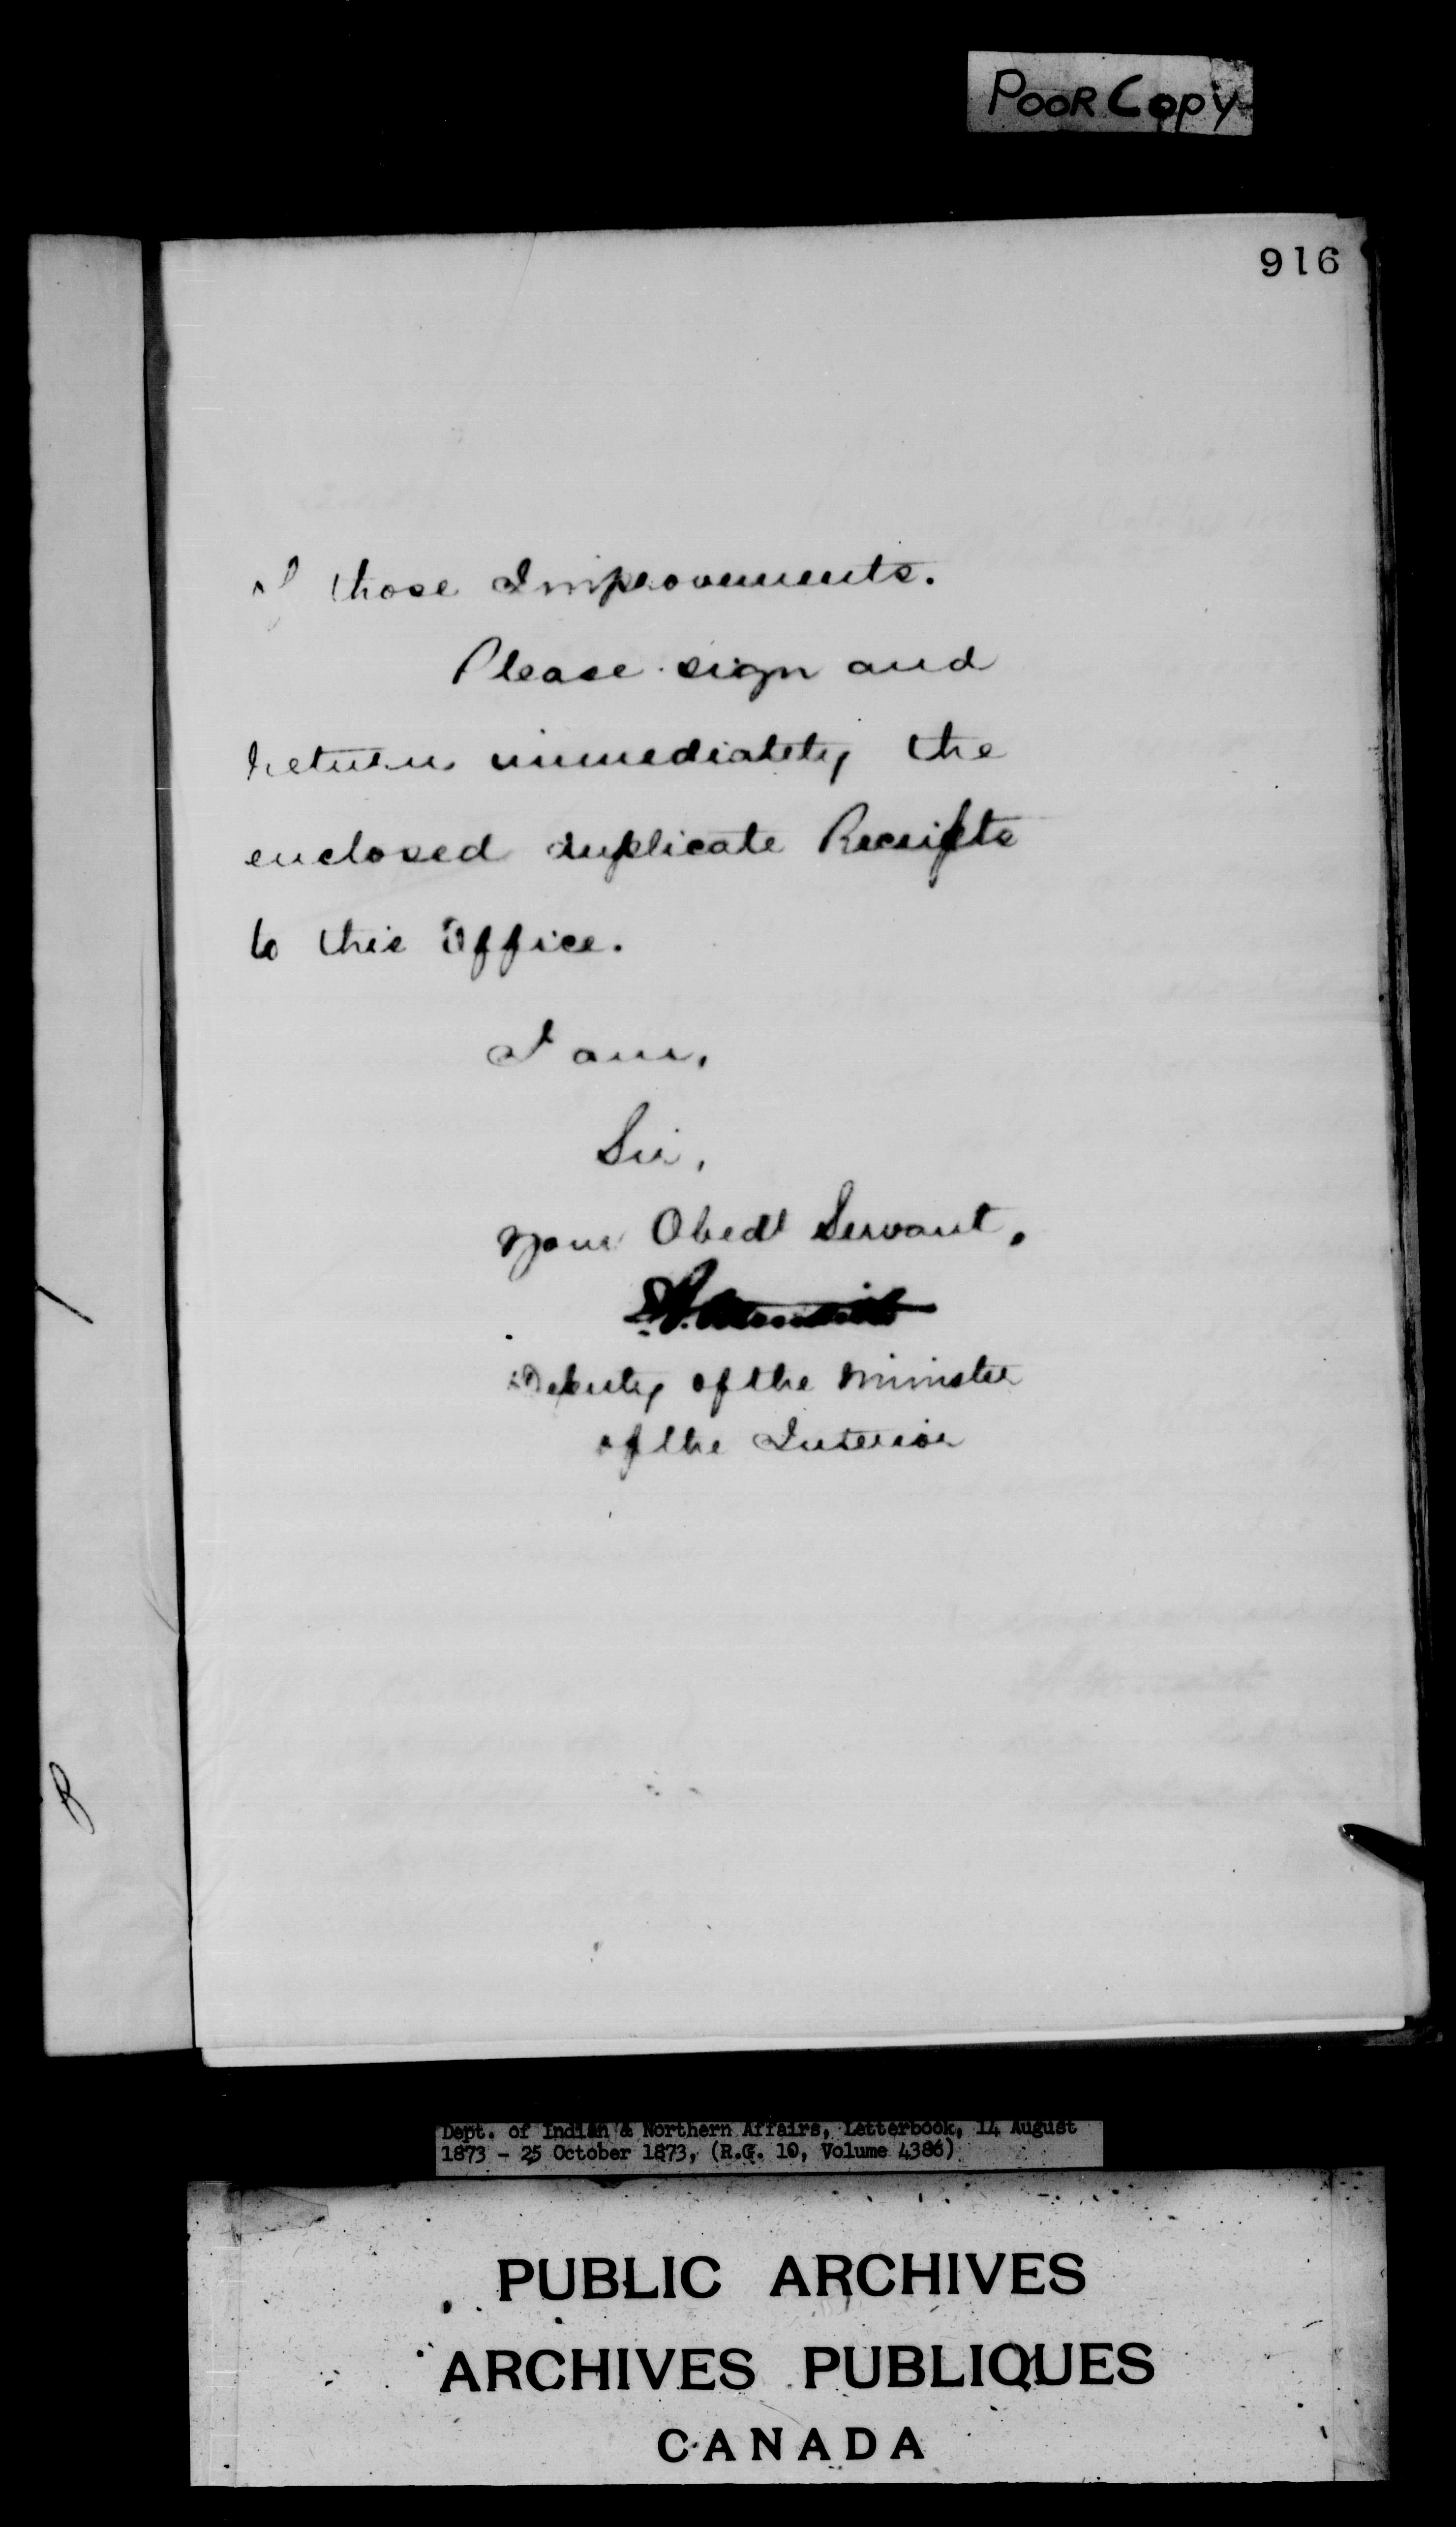 POOR Copy
916
of those Improvements.
Please sign and
return immediately the
enclosed duplicate Receipts
to this Office.
I am,
Sir,
Your Obedt Servant,
E. A. Meredith
Deputy of the Minister
of the Interior
Dept. of Indian & Northern Affairs, Letterbook, 14 August
1873 - 25 October 1873, (R.G. 10, Volume 4386)
PUBLIC ARCHIVES
ARCHIVES PUBLIQUES
CANADA